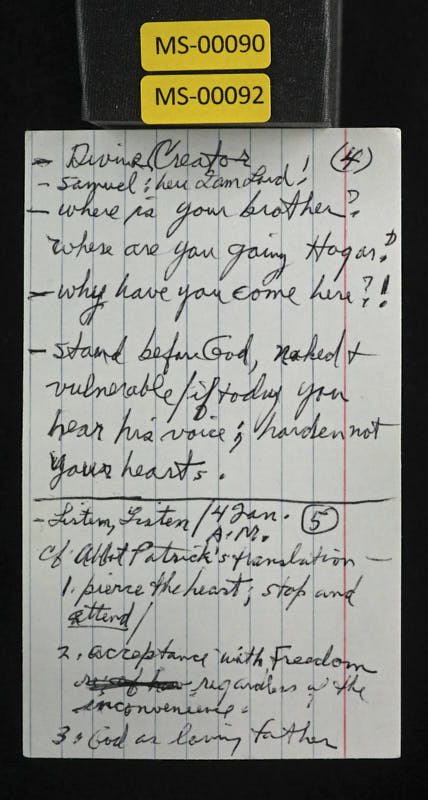 MS-00090
MS-00092
- Divine Creator ! (4)
- Samuel: here I am Lord!
- where is your brother?
where are you going Hagar?
- why have you come here?!
- stand before God, naked +
vulnerable/if today you
hear his voice; harden not
your hearts.
- Listen, Listen / 4 Jan. (5)
A.M.
cf Abbot Patrick's translation -
1. pierce the heart; stop and
attend/
2. acceptance with Freedom
regardless of the
inconvenience.
3. God as loving Father